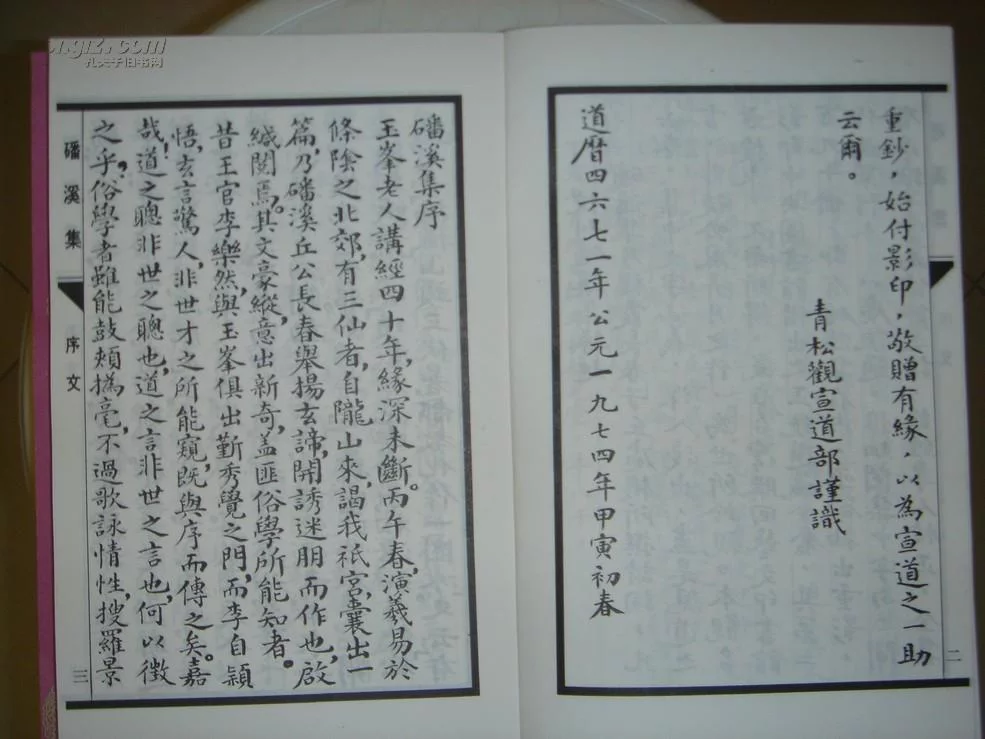 重鈔，始付影印，敬贈有緣，以為宣道之一助
云爾。
青松觀宣道部謹識
道曆四六七一年公元一九七四年甲寅初春
二
磻溪集序
玉峯老人講經四十年，緣深未斷。丙午春演羲易於
條陰之北郊，有三仙者，自隴山來，謁我祇宮，囊出一
篇，乃磻溪丘公長春舉揚玄諦，開誘迷朋而作也，啟
緘閱焉。其文豪縱，意出新奇，蓋匪俗學所能知者。
昔王官李樂然，與玉峯俱出靳秀覺之門，而李自穎
悟，玄言驚人，非世才之所能窺，既與序而傳之矣。嘉
哉！道之聰非世之聰也，道之言非世之言也，何以徵
之乎，俗學者雖能鼓頰撝毫，不過歌詠情性，搜羅景
磻溪集
序文
三
孔夫子旧书网